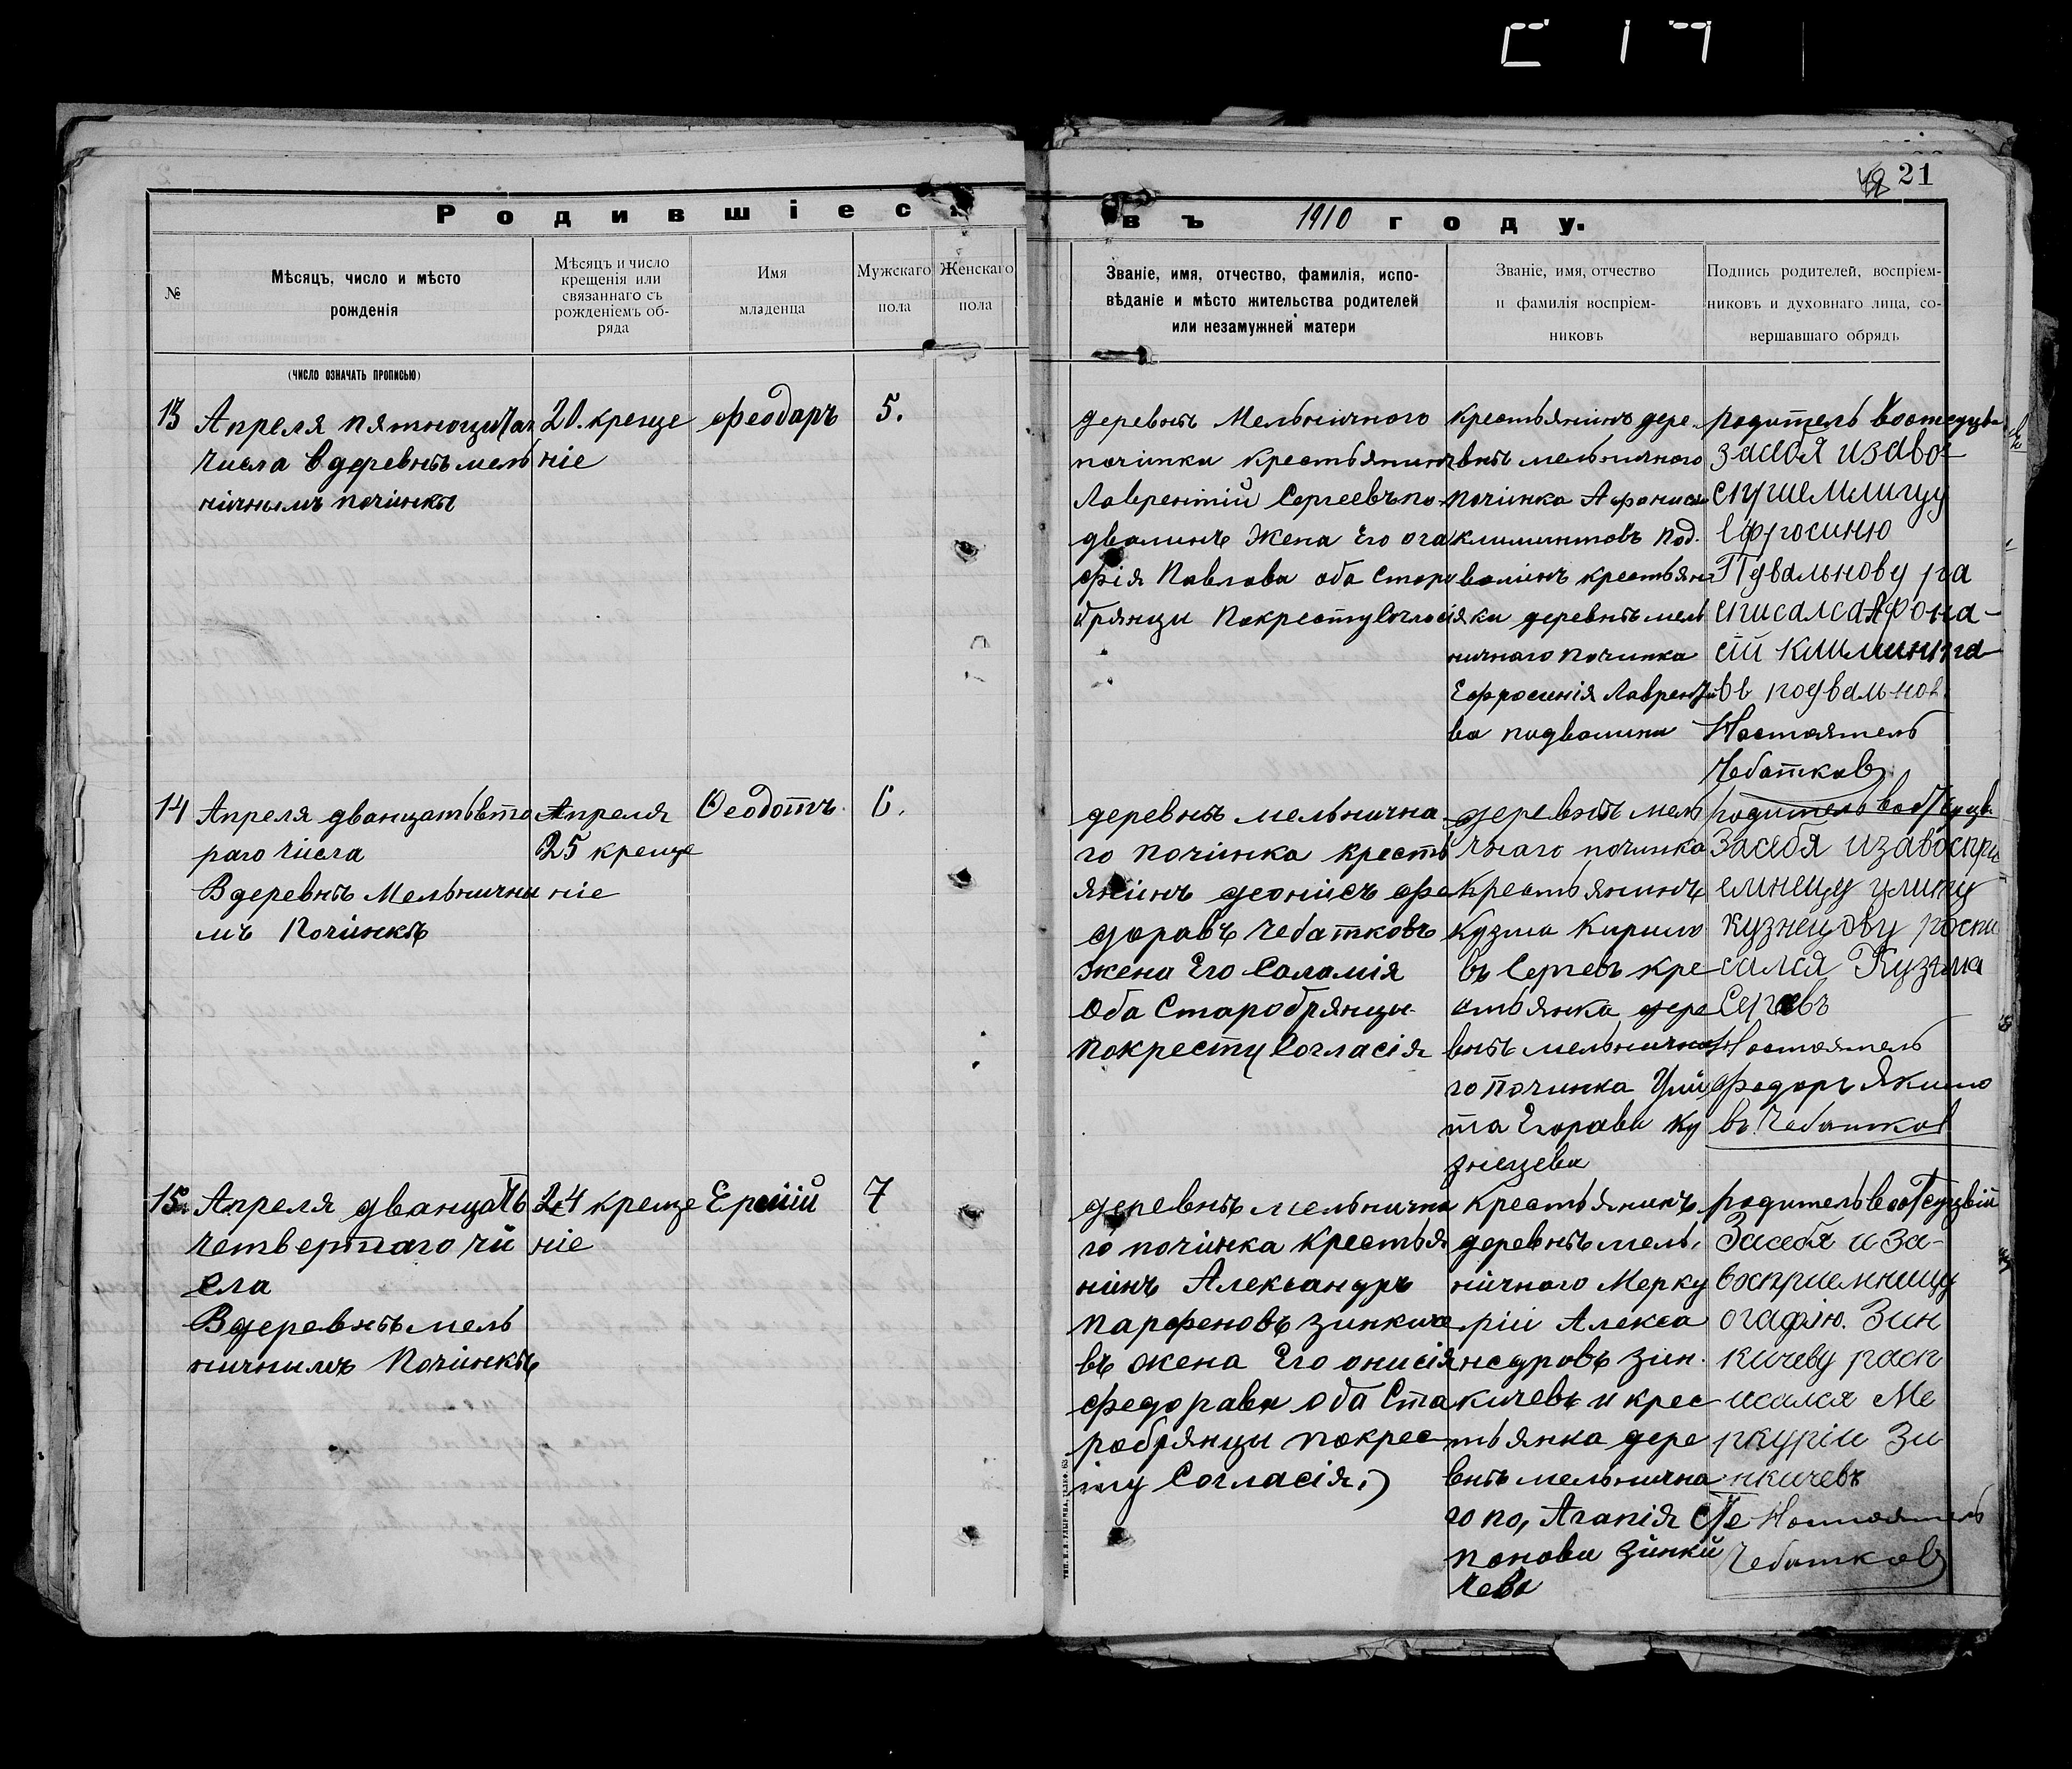 21
Родившіеся
въ 1910 году.
№
Мѣсяцъ, число и мѣсто
рожденія
Мѣсяцъ и число
крещенія или
связаннаго съ
рожденіемъ об-
ряда
Имя
младенца
Мужскаго
пола
Женскаго
пола
Званіе, имя, отчество, фамилія, испо-
вѣданіе и мѣсто жительства родителей
или незамужней матери
Званіе, имя, отчество
и фамилія воспріем-
никовъ
Подпись родителей, воспріем-
никовъ и духовнаго лица, со-
вершавшаго обрядъ
(число означать прописью)
13
Апреля
числа в деревнѣ мель
нічнымъ починкѣ
20. креще
ніе
Феодаръ
5.
деревнѣ Мельнічного
починка крестьянинъ
Лаврентій Сергеевъ по
двалинъ Жена Его ога
фія Павлова оба Стару
брянцы Покрестусогласія
крестьянинъ дере-
внѣ мельничного
починка Афонась
климинтовъ Под.
валінъ крестьян
ка деревнѣ мель
ничного починка
Ефросинія Лаврентье
ва подвалина
родитель
засебя изаво-
Ефросиню
Подвальнову ра
списалса Афона-
сій климинта
въ подвальнов
Настоятель
Чебатков
14
Апреля дванцатьвто
раго числа
В деревнѣ Мельничны
мъ Починкѣ
Апреля
25 креще
ніе
Ѳеодотъ.
6.
деревнѣ мельнична
го починка кресть
янинъ деонисъ фе
доравъ Чебатковъ
жена Его Саламія
Оба Старобрянцы
покресту Согласія
деревнѣ мель
чнаго починка
крестьянинъ
Кузма Кирило
въ Сергевъ кре
стьянка дере
внѣ мельнична
го починка Ули
та Егорава Ку
знецева
родитель
Засебя изавоспри
емнецу улиту
кузнецову роспи
сался Кузма
Сергевъ
Настоятель
Федоръ Якимо
въ Чебатков
15.
Апреля дванцать
четвертаго чи
сла
В деревнѣ мель
ничнимъ Починкѣ
24 креще
ніе
7
деревнѣ мельнична
го починка крестья
нинъ Александръ
Парфеновъ зинкиче
въ жена Его онисія
федорава оба Ста
робрянцы покрес
ту Согласія,)
крестьянинъ
деревнѣ мель,
нічного Мерку
ріи Алекса
недровъ зин.
кичевъ и крес
тьянка дере
внѣ мельнична
го по, Агапія Сте
панова Зинки
чева
родитель
Засебя и за-
восприемницу
огафію. Зин
кичеву расп
исался Ме
ркуріи Зи
нкичевъ
Настоятель
Чебатков